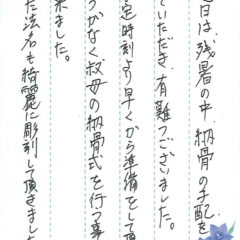 日は、残暑の中、納骨の手配を
ていただき、有難うございました。
定時刻より早くから準備をして頂
うがなく叔母の納骨式を行う事
来ました。
た法名も綺麗に彫刻して頂きました